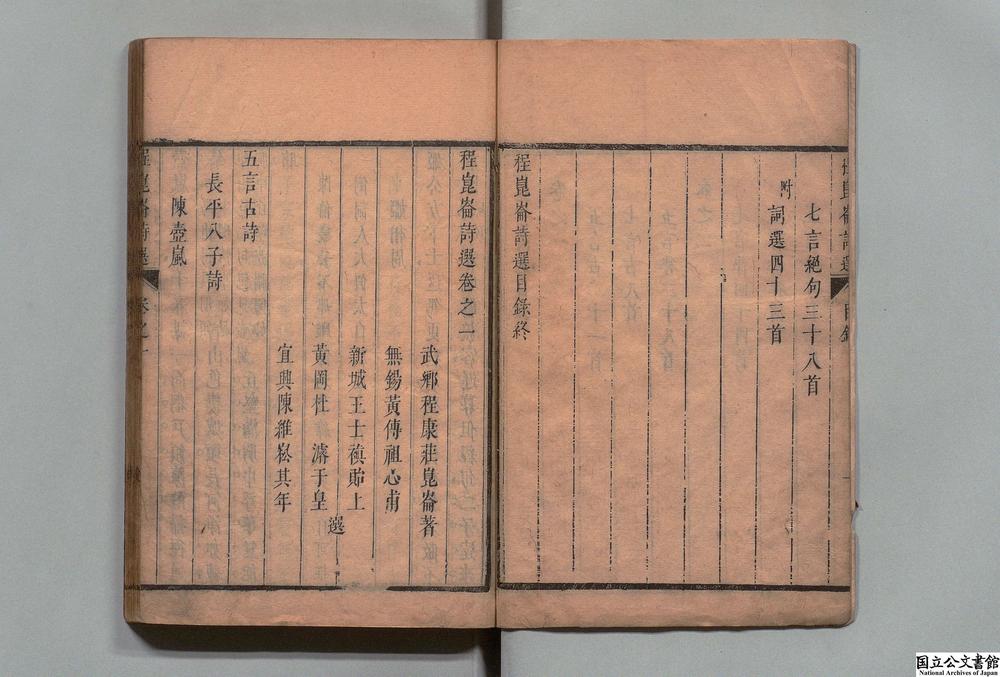 七言絕句三十八首
附
詞選四十三首
程崑崙詩選目錄終
程崑崙詩選卷之一
武鄉程康莊崑崙著
無錫黃傳祖心甫
新城王士禛貽上
黃岡杜濬于皇
選
宜興陳維崧其年
五言古詩
長平八子詩
陳壺嵐
程崑崙詩選
卷之一
国立公文書館
National Archives of Japan